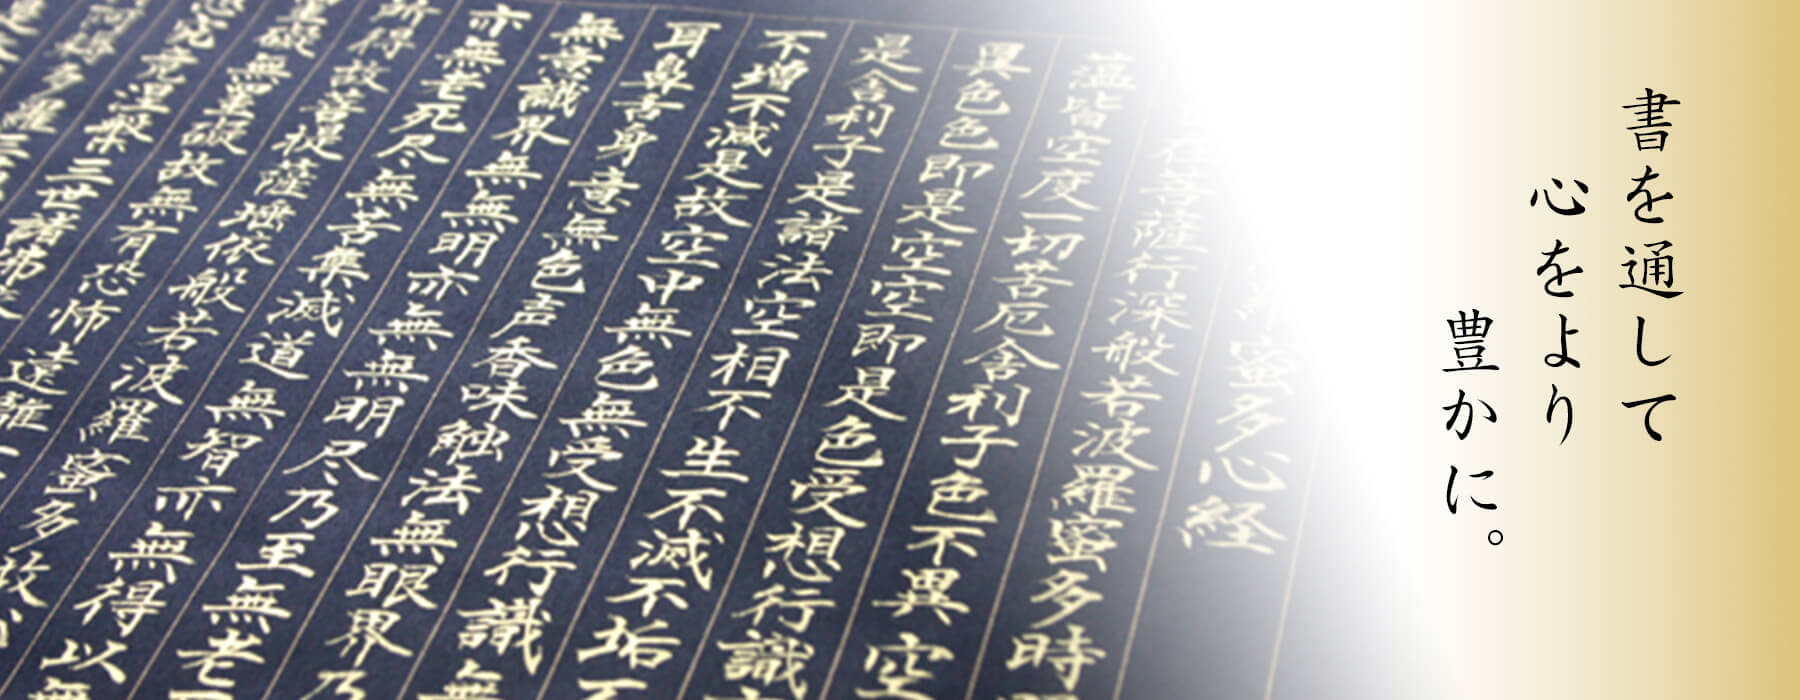 書を通して
心をより
豊かに。
蜜多心経
在菩薩行深般若波羅蜜多時
蘊皆空度一切苦厄舎利子色不異空
異色色即是空空即是色受想行識
是舎利子是諸法空相不生不滅不垢不
不増不減是故空中無色無受想行識無
耳鼻舌身意無色声香味触法無眼界乃
無意識界無無明亦無無明尽乃至無老
亦無老死尽無苦集滅道無智亦無得以無
所得故菩提薩埵依般若波羅蜜多故心
罣礙無罣礙故無有恐怖遠離一
究竟涅槃三世諸佛
耨多羅三